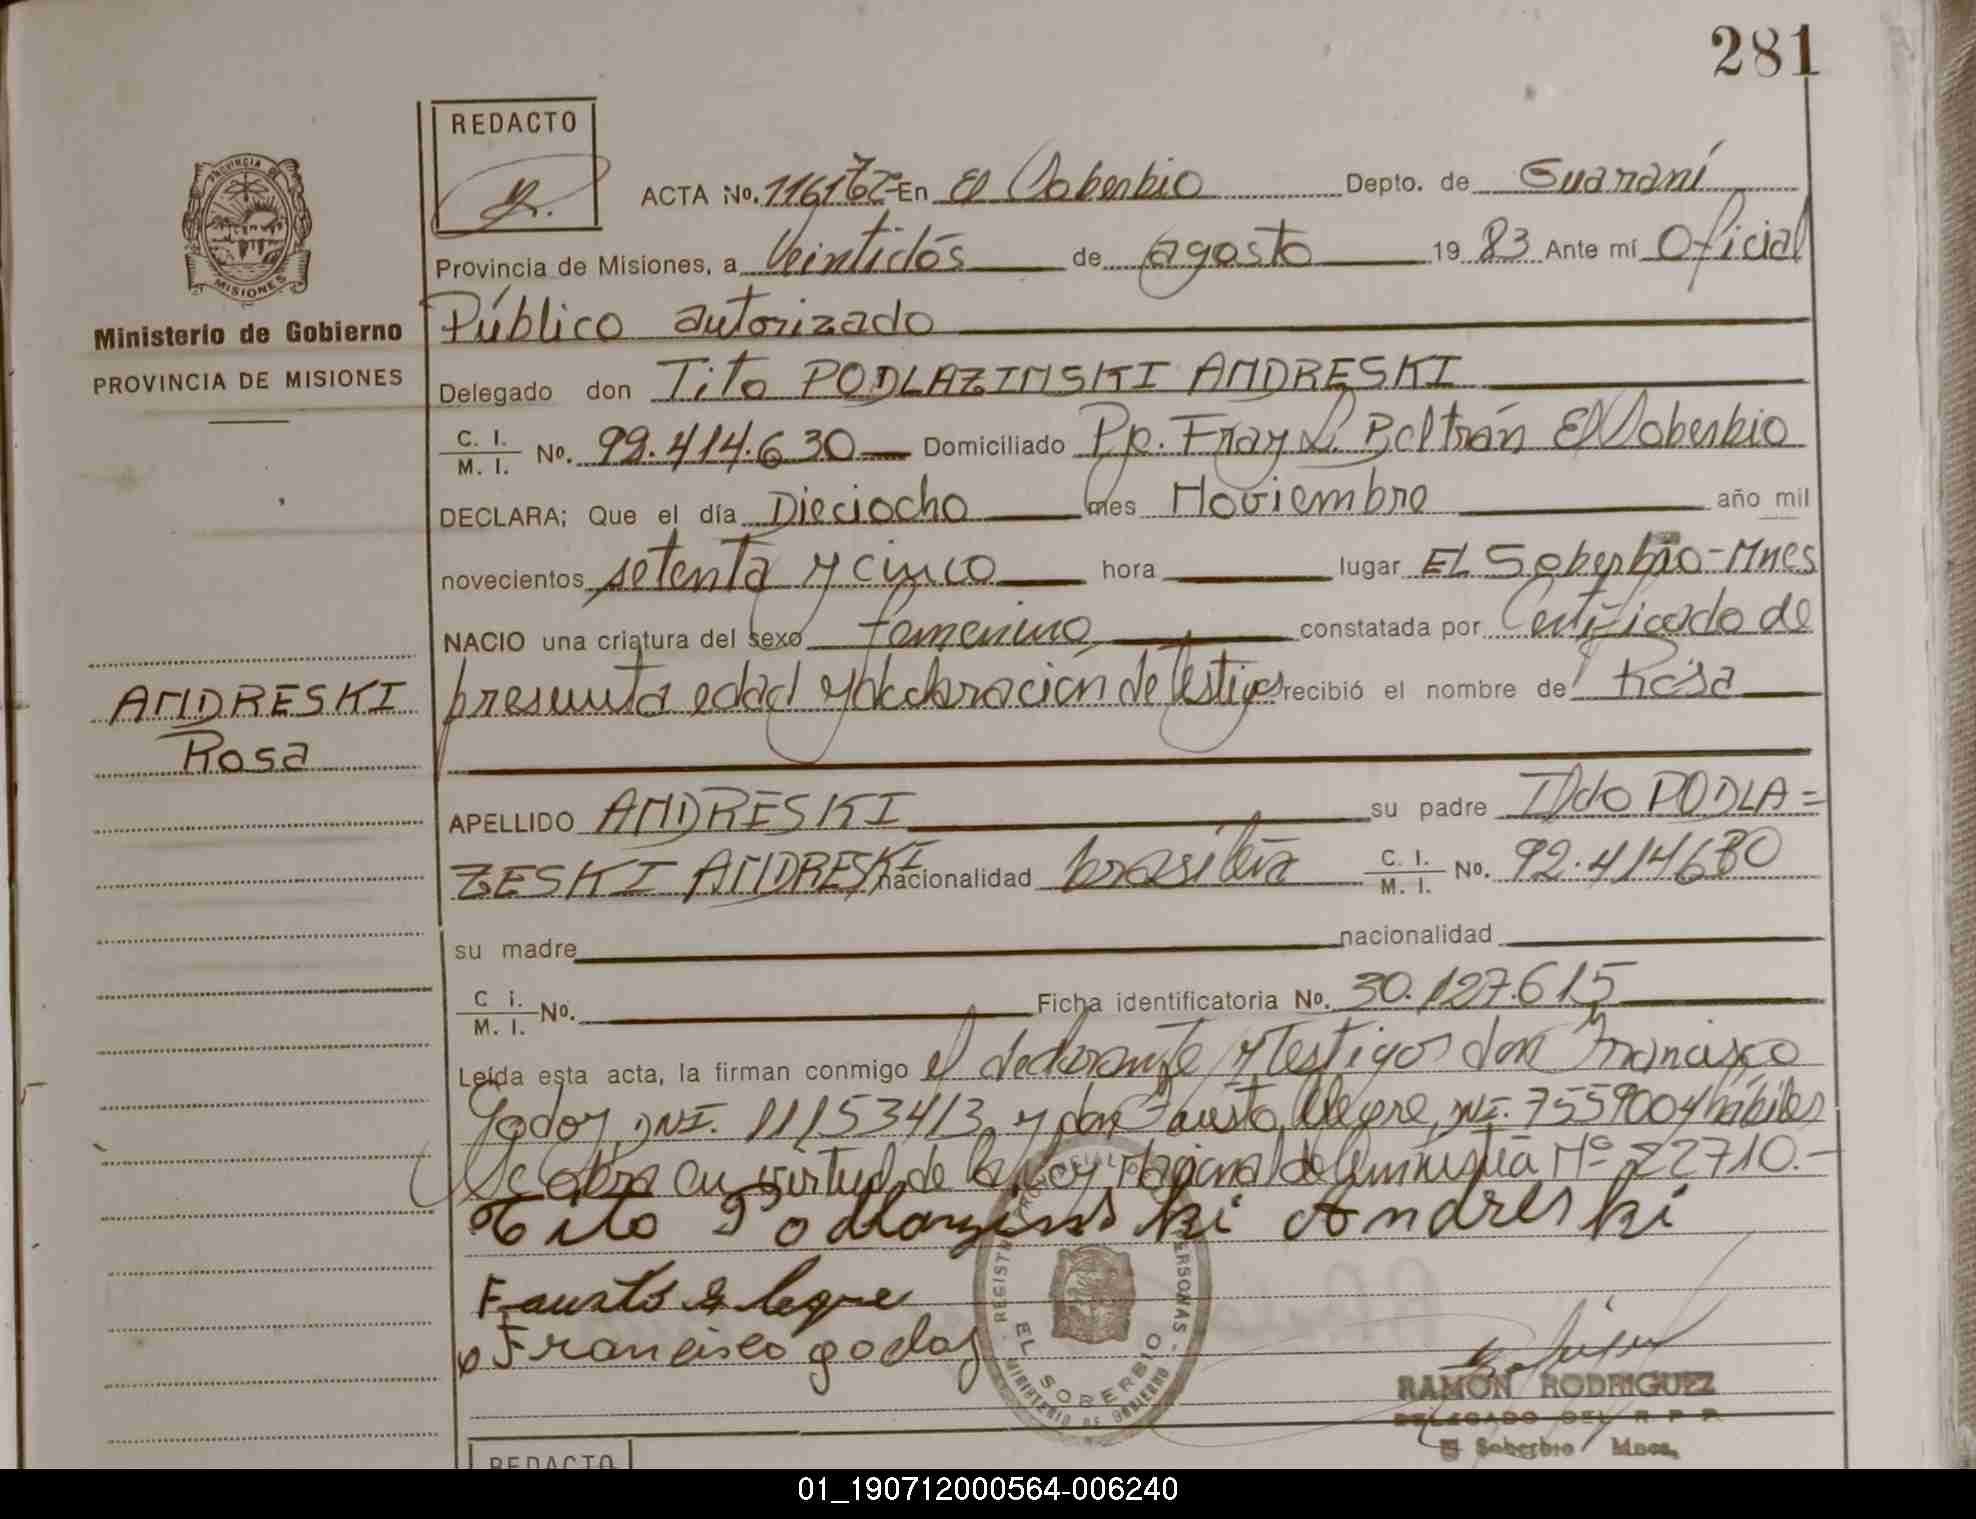 281
REDACTO
ACTA No. 116 En El Soberbio Depto. de Guaraní
PROVINCIA DE
MISIONES
Provincia de Misiones, a Veintidós de agosto 1983 Ante mí Oficial
Ministerio de Gobierno
PROVINCIA DE MISIONES
Público autorizado
Delegado don Tito PODLAZINSKI ANDRESKI
C. I. M. I. No. 99.414.630 Domiciliado Pje. Fray L. Beltrán El Soberbio
DECLARA; Que el día Dieciocho mes Noviembre año mil
novecientos setenta y cinco hora lugar EL Soberbio-Mnes
NACIO una criatura del sexo femenino constatada por Certificado de
presunta edad y declaración de testigos recibió el nombre de Rosa
ANDRESKI
Rosa
APELLIDO ANDRESKI su padre Ildo PODLA=
ZESKI ANDRESKI nacionalidad brasileña C. I. M. I. No. 92.414630
su madre nacionalidad
C i. M. I. No. Ficha identificatoria No. 30.127.615
Leída esta acta, la firman conmigo el declarante y testigos don Francisco
Godoy, DNI. 11153413 y don Fausto Alegre, DNI. 7559004 hábiles
Se obra en virtud de la Ley Nacional de Amnistía Nº 22710.-
Tito Podlazinski Andreski
Fausto Alegre
Francisco godoy
EL SOBERBIO
MINISTERIO DE GOBIERNO
RAMON RODRIGUEZ
DELEGADO DEL R P P
El Soberbio Mnes.
REDACTO
01_190712000564-006240